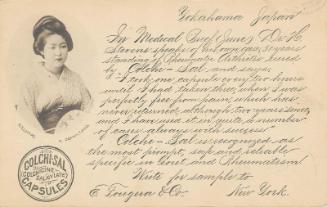 Yokahama Japan
In "Medical Brief (June)" Dr. H.
Stevens speaks of his own case, 3 years
standing of Rheumatic Arthritis cured
by Colchi-Sal, and says,
"I took one capsule every two hours
until I had taken three, when I was
perfectly free from pain, which has
never returned, although two years since,
and I have used it in quite a number
of cases always with success"
Colchi-Sal is recognized as
the most prompt, safe and reliable
specific in Gout and Rheumatism
Write for sample to
E. Fougera & Co. New York.
COLCHI-SAL
CAPSULES